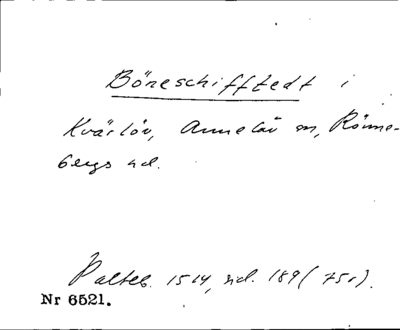 Böneschifftedt i
Kvärlöv, Annelöv sn, Rönne-
bergs hd.
Palteb. 1514, sid. 189 (75r).
Nr 6521.